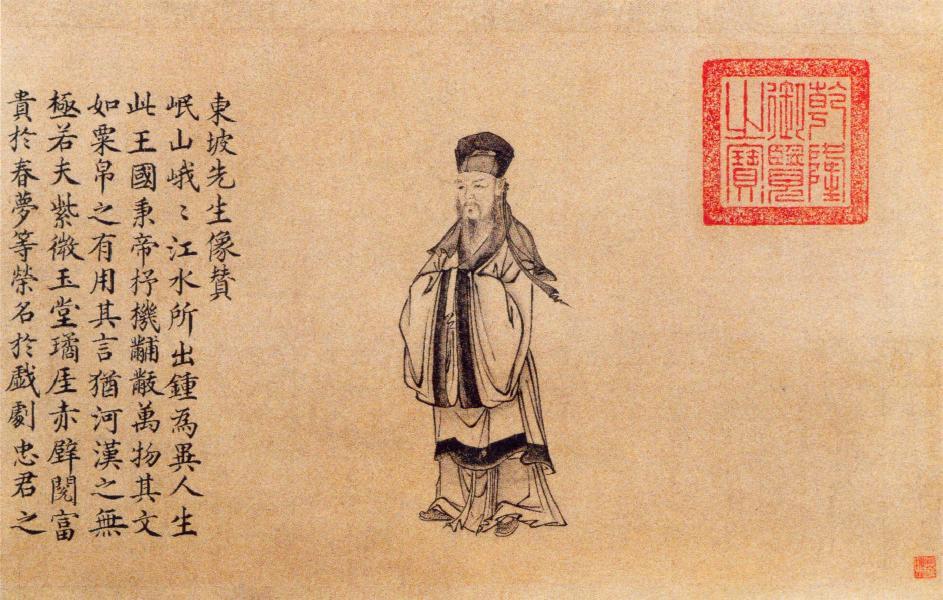 乾隆
御覽
之寶
東坡先生像賛
岷山峨〻江水所出鍾為異人生
此王國秉帝杼機黼黻萬物其文
如粟帛之有用其言猶河漢之無
極若夫紫微玉堂璚厓赤壁閱富
貴於春夢等榮名於戲劇忠君之